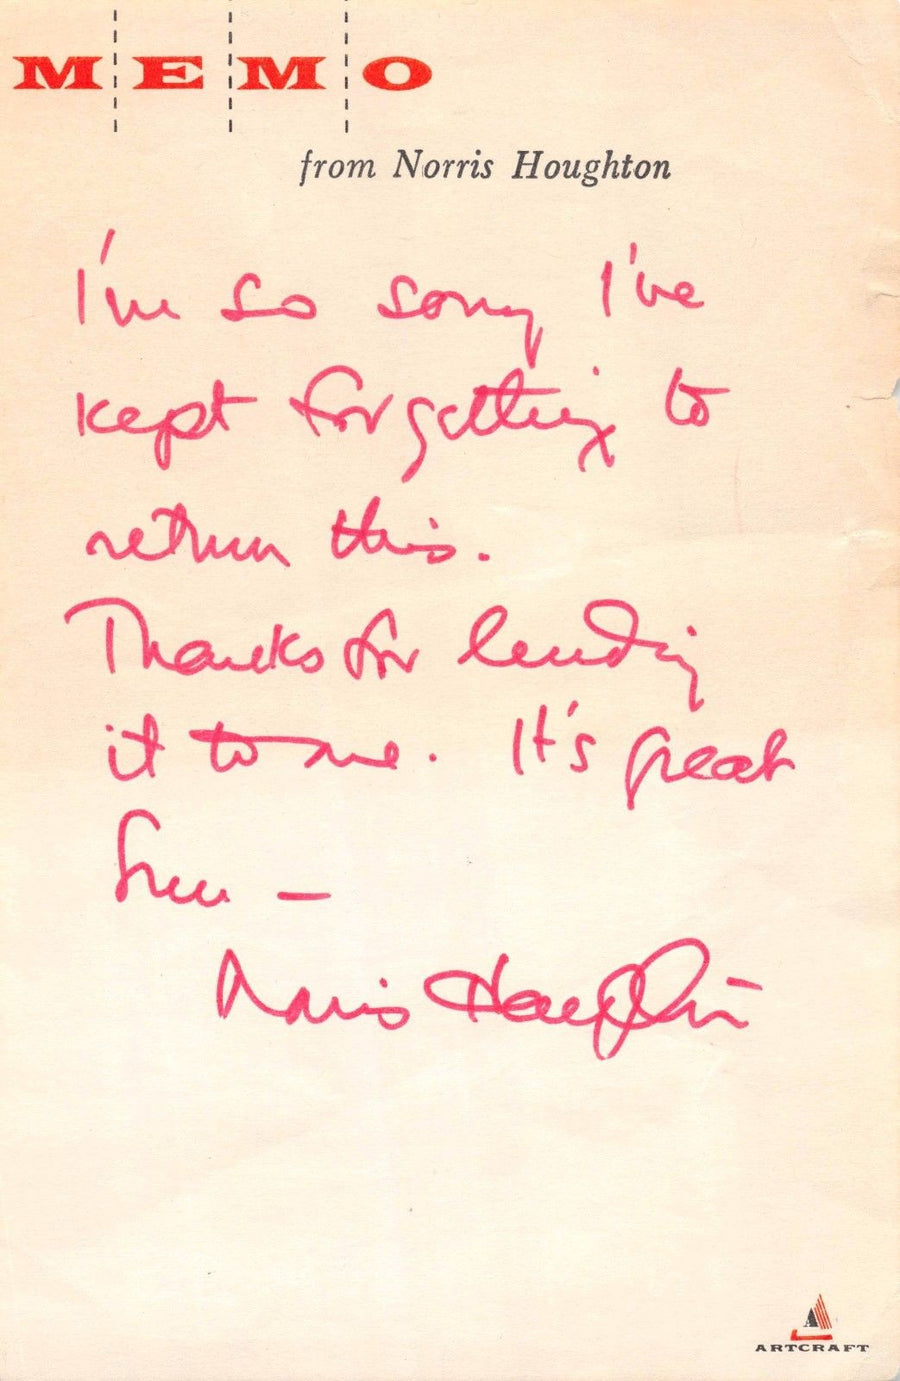 MEMO
from Norris Houghton
I'm so sorry I've
kept forgetting to
return this.
Thanks for lending
it to me. It's great
fun —
Norris Houghton
ARTCRAFT